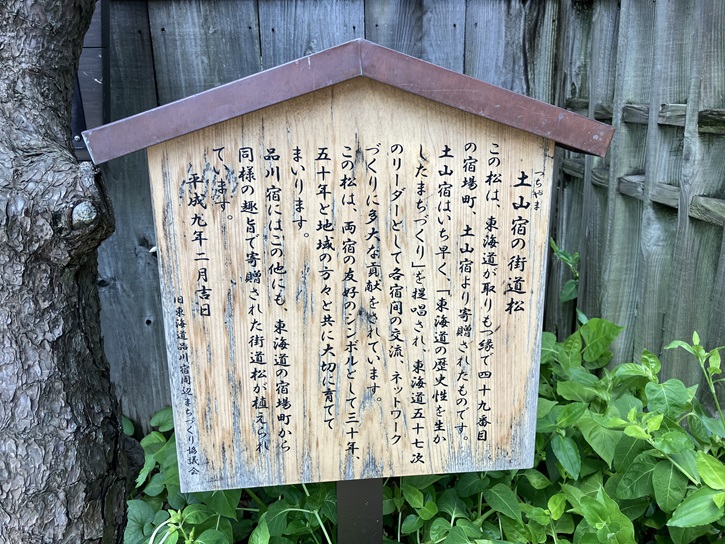 土山宿の街道松
つちやま
この松は、東海道が取りもつ縁で四十九番目
の宿場町、土山宿より寄贈されたものです。
土山宿はいち早く、「東海道の歴史性を生か
したまちづくり」を提唱され、東海道五十七次
のリーダーとして各宿間の交流、ネットワーク
づくりに多大な貢献をされています。
この松は、両宿の友好のシンボルとして三十年、
五十年と地域の方々と共に大切に育てて
まいります。
品川宿にはこの他にも、東海道の宿場町から
同様の趣旨で寄贈された街道松が植えられ
ています。
平成九年二月吉日
旧東海道品川宿周辺まちづくり協議会